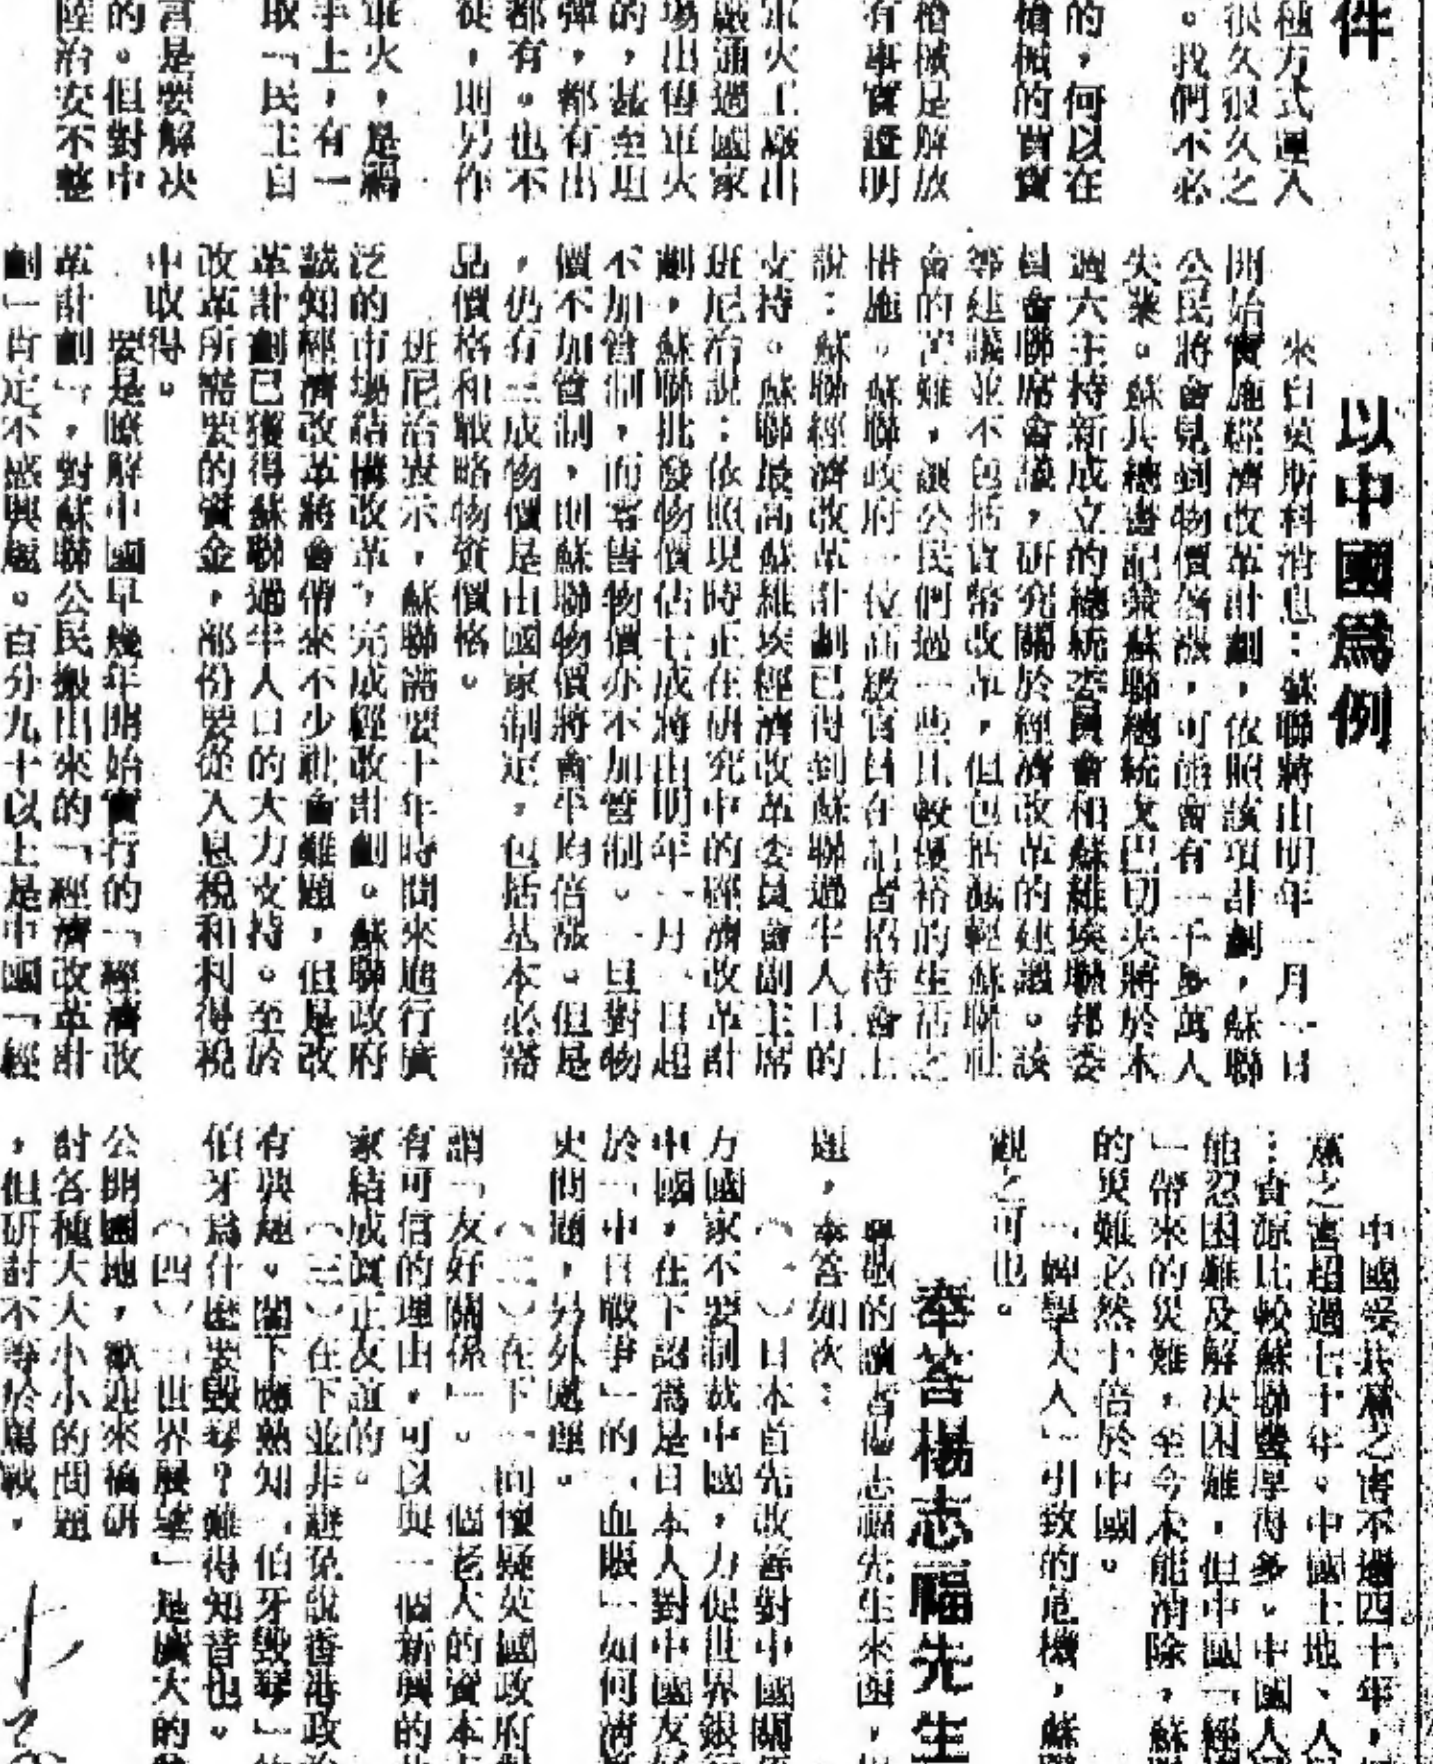 件
極方式運入
很久很久之
。我們不必
的，何以在
槍械的買賣
槍械是解放
有事實證明
軍火工廠出
廠通過國家
場出售軍火
的，甚至坦
彈，都有出
都有。也不
徒，則另作
軍火，是禍
手上，有一
取「民主自
言是要解決
的。但對中
陸治安不整
以中國爲例
來自莫斯科消息：蘇聯將由明年一月一日
開始實施經濟改革計劃，依照該項計劃，蘇聯
公民將會見到物價倍漲，可能會有一千多萬人
失業。蘇共總書記兼蘇聯總統戈巴切夫將於本
週六主持新成立的總統委員會和蘇維埃聯邦委
員會聯席會議，研究關於經濟改革的建議。該
等建議並不包括貨幣改革，但包括減輕蘇聯社
會的苦難，讓公民們過一些比較優裕的生活之
措施。蘇聯政府一位高級官員在記者招待會上
說：蘇聯經濟改革計劃已得到蘇聯過半人口的
支持。蘇聯最高蘇維埃經濟改革委員會副主席
班尼治說：依照現時正在研究中的經濟改革計
劃，蘇聯批發物價佔七成將由明年一月一日起
不加管制，而零售物價亦不加管制。一旦對物
價不加管制，則蘇聯物價將會平均倍漲。但是
，仍有三成物價是由國家制定，包括基本必需
品價格和戰略物資價格。
班尼治表示，蘇聯需要十年時間來進行廣
泛的市場結構改革，完成經改計劃。蘇聯政府
誠知經濟改革將會帶來不少社會難題，但是改
革計劃已獲得蘇聯過半人口的大力支持。至於
改革所需要的資金，部份要從入息稅和利得稅
中取得。
要是瞭解中國早幾年開始實行的「經濟改
革計劃」，對蘇聯公民搬出來的「經濟改革計
劃」肯定不感興趣。百分九十以上是中國「經
中國受共黨之害不過四十年，
黨之害超過七十年。中國土地、人
：資源比較蘇聯豐厚得多。中國人
能忍困難及解決困難，但中國「經
」帶來的災難，至今未能消除，蘇
的災難必然十倍於中國。
「婢學夫人」引致的危機，蘇聯
觀之可也。
奉答楊志福先生
尊敬的讀者楊志福先生來函，
題，奉答如次：
（一）日本首先改善對中國關係
方國家不要制裁中國，力促世界銀
中國，在下認爲是日本人對中國友
於「中日戰爭」的「血賬」如何清
史問題，另外處理。
（二）在下一向懷疑英國政府
謂「友好關係」。一個老大的資本
有可信的理由，可以與一個新興的
家結成眞正友誼的。
（三）在下並非避免說香港政
有興趣。閣下應熟知「伯牙毀琴」
伯牙爲什麼要毀琴？難得知音也。
（四）「世界展望」是廣大的
公開園地，歡迎來稿研
討各種大大小小的問題
，但研討不等於罵戰，